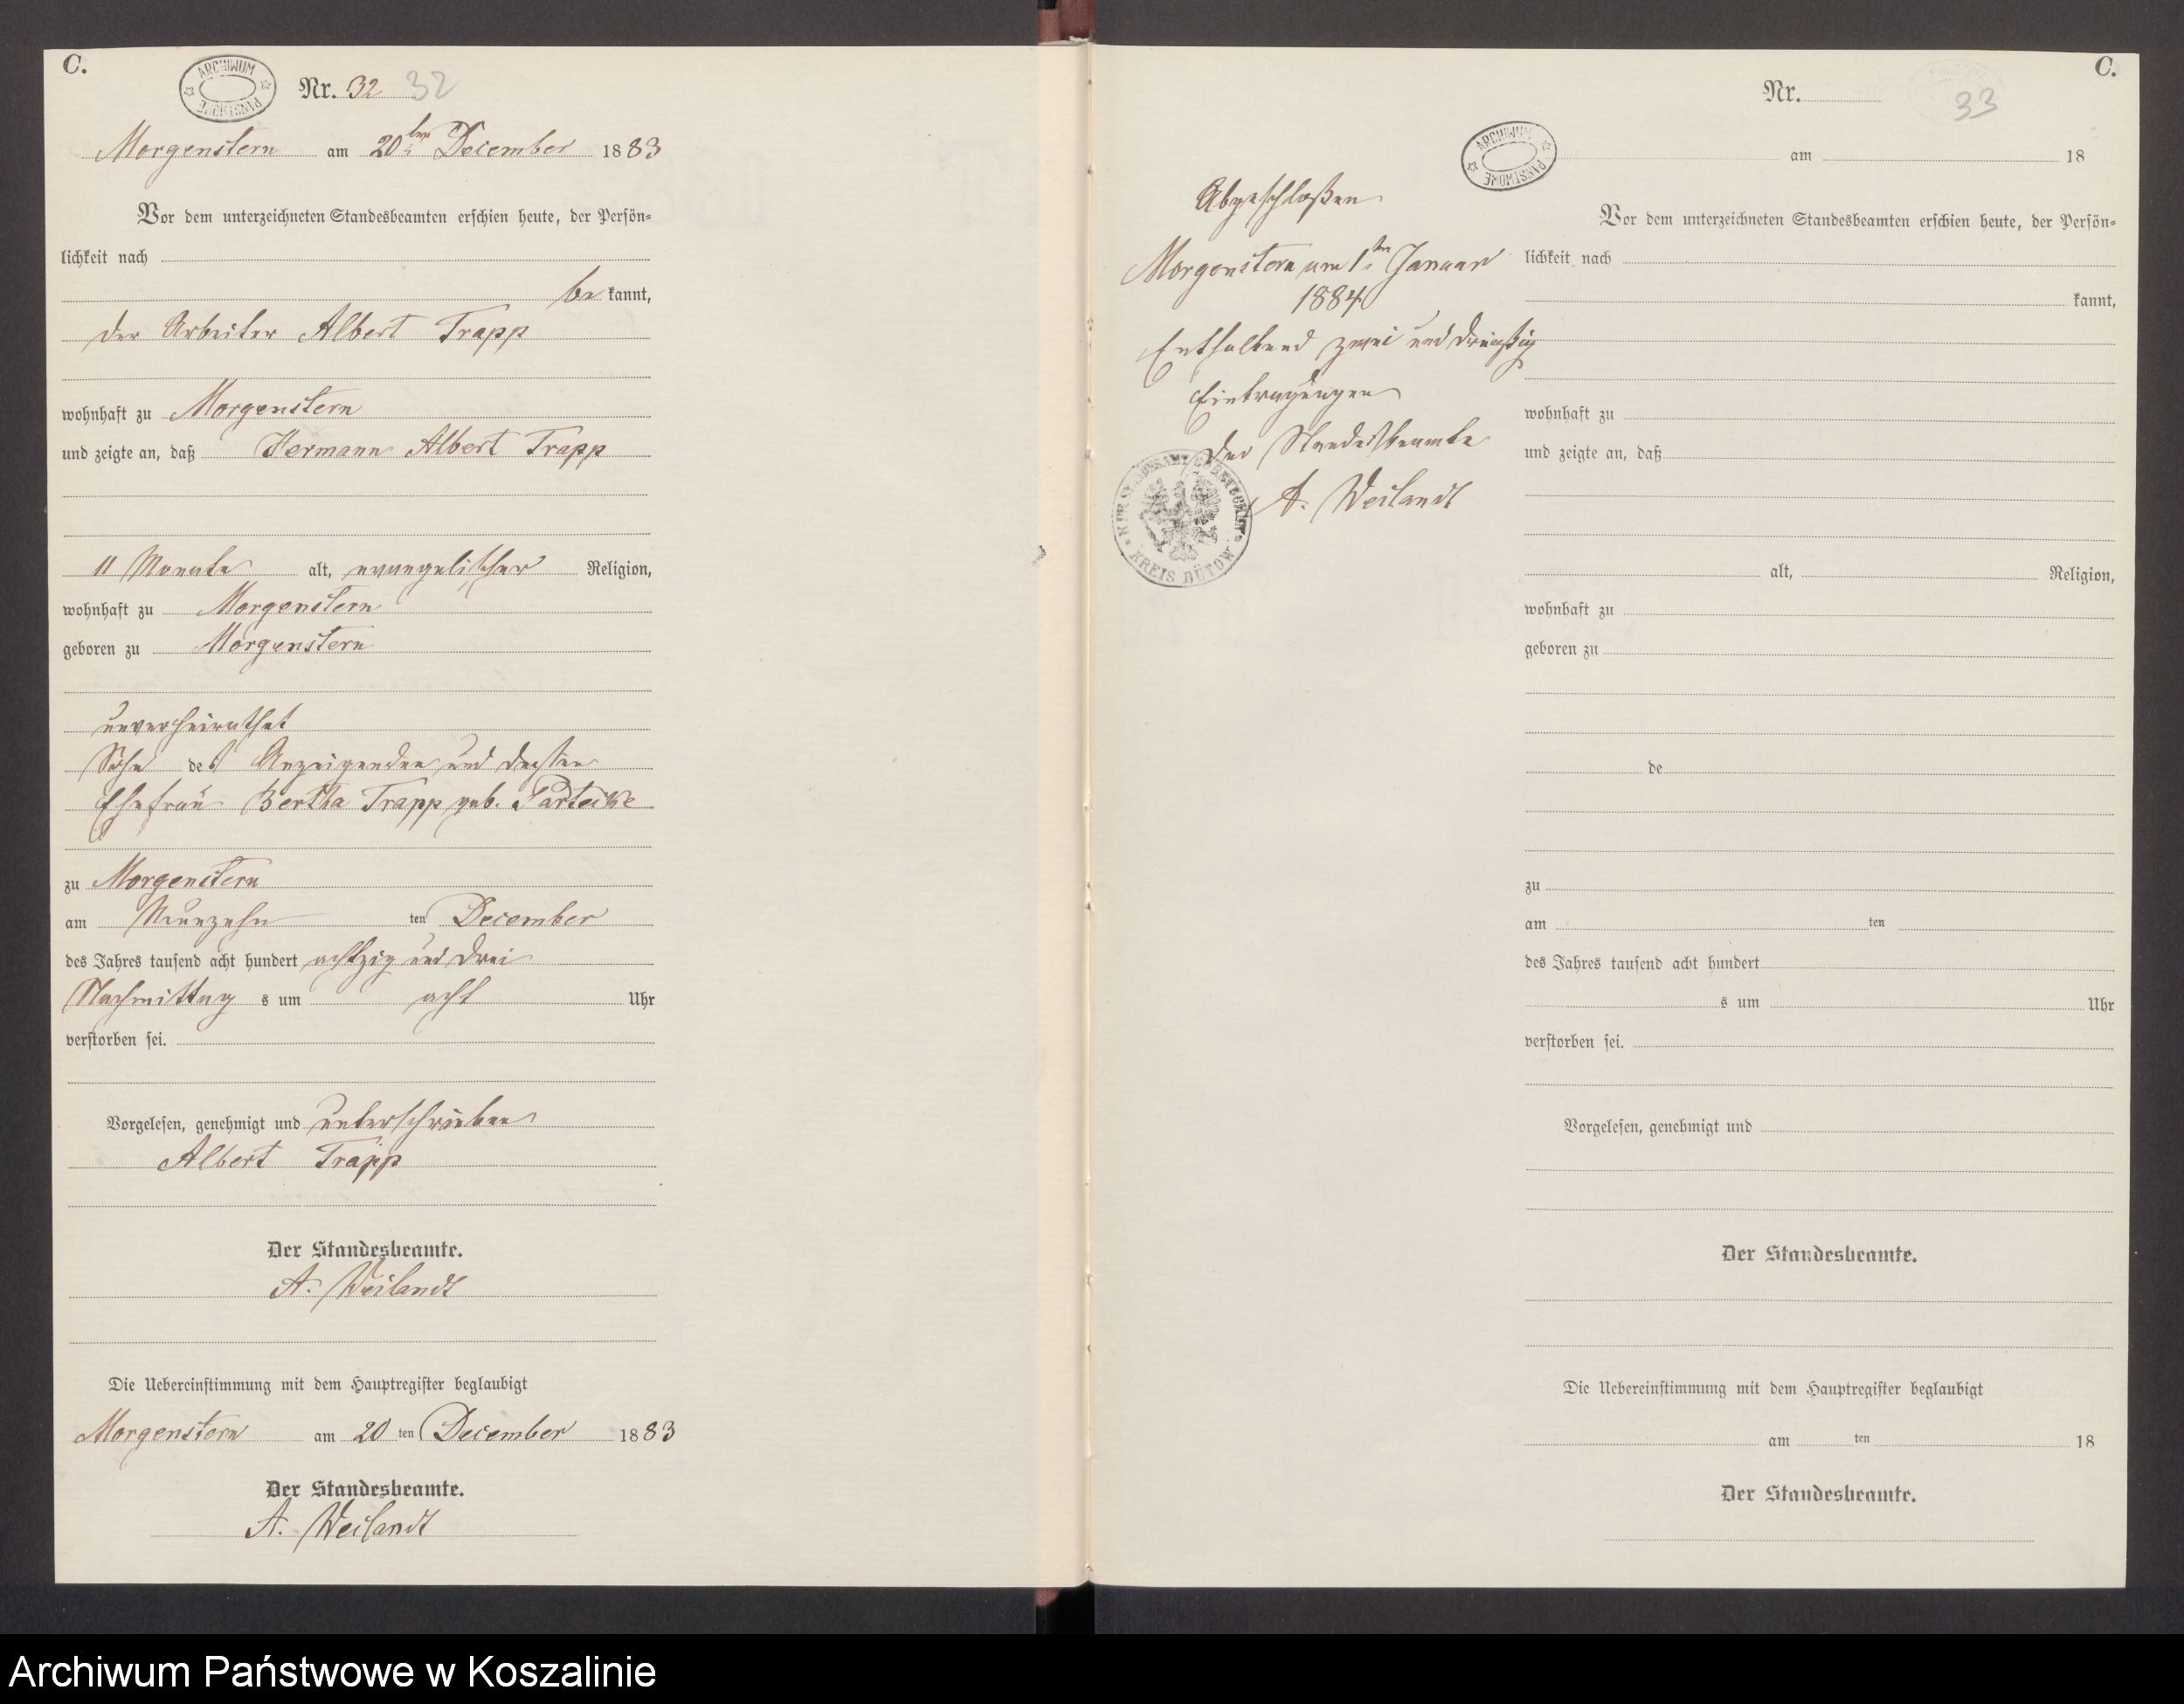 C.
ARCHIWUM PAŃSTWOWE
Nr. 32 32
Morgenstern am 20ten December 1883
Vor dem unterzeichneten Standesbeamten erschien heute, der Persön=
lichkeit nach
be kannt,
der Arbeiter Albert Trapp
wohnhaft zu Morgenstern
und zeigte an, daß Hermann Albert Trapp
11 Monate alt, evangelischer Religion,
wohnhaft zu Morgenstern
geboren zu Morgenstern
unverheirathet
Sohn des Anzeigenden und dessen
Ehefrau Bertha Trapp geb. Parteike
zu Morgenstern
am Neunzehn ten December
des Jahres tausend acht hundert achtzig und drei
Nachmittag s um acht Uhr
verstorben sei.
Vorgelesen, genehmigt und unterschrieben
Albert Trapp
Der Standesbeamte.
A. Weilandt
Die Uebereinstimmung mit dem Hauptregister beglaubigt
Morgenstern am 20 ten December 1883
Der Standesbeamte.
A. Weilandt
Abgeschloßen
Morgenstern am 1ten Januar
1884
Enthaltend zwei und dreißig
Eintragungen
Der Standesbeamte
A. Weilandt
KREIS BÜTOW
C.
Nr.
33
ARCHIWUM PAŃSTWOWE
am 18
Vor dem unterzeichneten Standesbeamten erschien heute, der Persön=
lichkeit nach
kannt,
wohnhaft zu
und zeigte an, daß
alt, Religion,
wohnhaft zu
geboren zu
de
zu
am ten
des Jahres tausend acht hundert
s um Uhr
verstorben sei.
Vorgelesen, genehmigt und
Der Standesbeamte.
Die Uebereinstimmung mit dem Hauptregister beglaubigt
am ten 18
Der Standesbeamte.
Archiwum Państwowe w Koszalinie